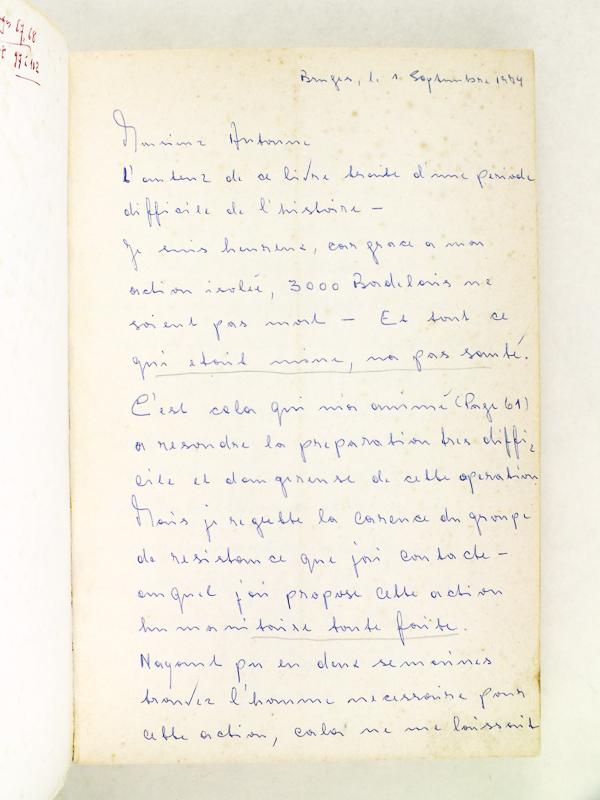 67, 68
97 à 102
Bruges, le 1 Septembre 1994
Monsieur Antoune
L'auteur de ce livre traite d'une période
difficile de l'histoire —
Je suis heureux, car grace a mon
action isolée, 3000 Bordelais ne
soient pas mort — Et tout ce
qui etait miné, na pas sauté.
C'est cela qui m'a animé (Page 61)
a resoudre la preparation tres diffi-
cile et dangereuse de cette operation
Mais je regrette la carence du groupe
de resistance que j'ai contacte —
auquel j'ai propose cette action
humanitaire toute faite.
Nayant pu en deux semaines
trouver l'homme necessaire pour
cette action, cela ne me laissait